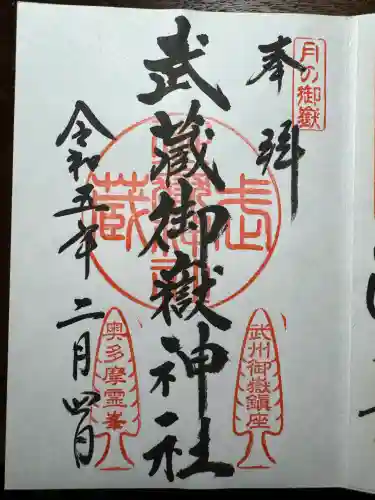 月の御嶽
奉拝
武州御嶽鎮座
武蔵御嶽神社
奥多摩霊峯
令和五年二月四日